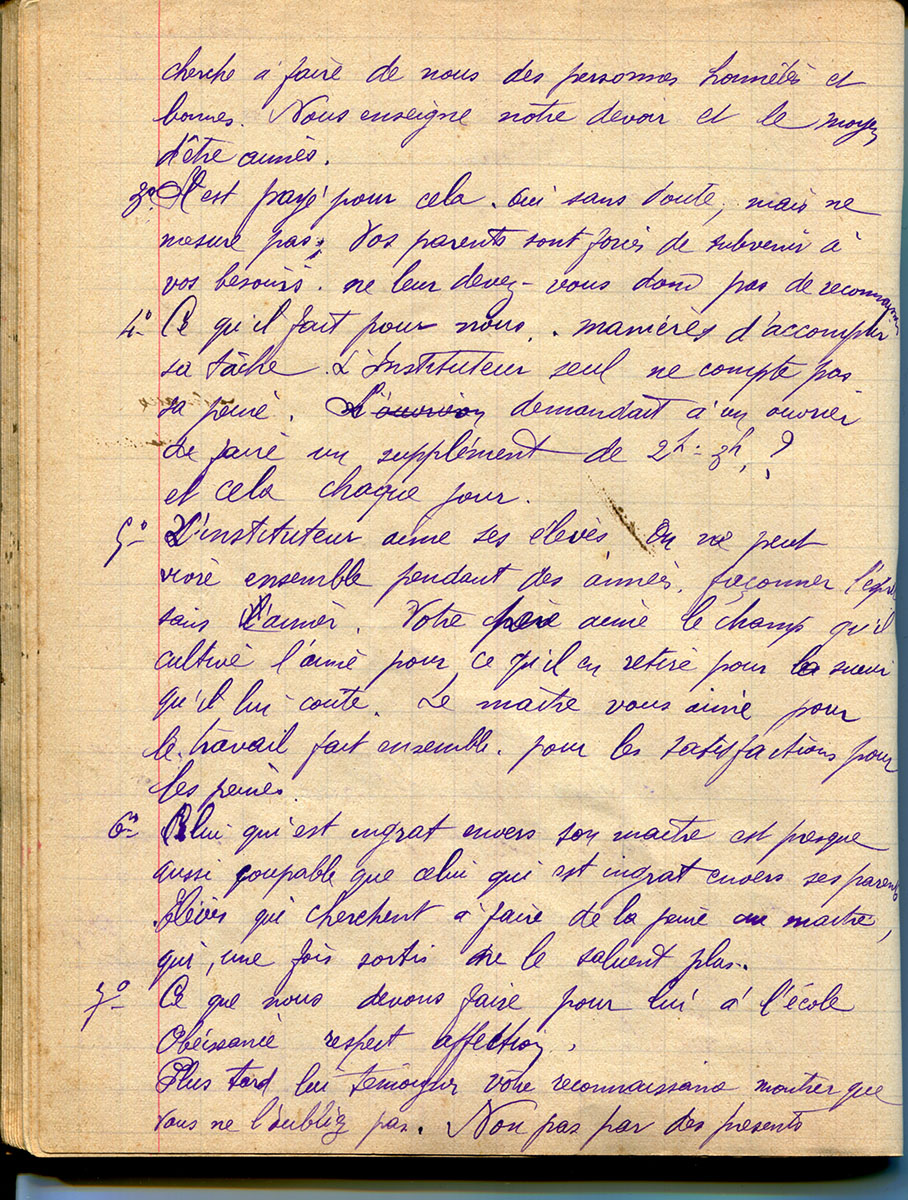 cherche à faire de nous des personnes honnêtes et
bonnes. Nous enseigne notre devoir et le moyen
d'être aimés.
3º Il est payé pour cela. oui sans doute, mais ne
mesure pas; Vos parents sont forcés de subvenir à
vos besoins. ne leur devez-vous donc pas de reconnaissance
4º Ce qu'il fait pour nous. manières d'accomplir
sa tâche. L'Instituteur seul ne compte pas
sa peine. L'ouvrier demandait à un ouvrier
de faire un supplément de 2h - 3h, ?
et cela chaque jour.
5º L'instituteur aime ses élèves On ne peut
vivre ensemble pendant des années, façonner
sans l'aimer. Votre père aime le champ qu'il
cultive l'aime pour ce qu'il en retire pour la sueur
qu'il lui coute. Le maître vous aime pour
le travail fait ensemble. pour les satisfactions pour
les peines.
6º Celui qui est ingrat envers son maître est presque
aussi coupable que celui qui est ingrat envers ses parents
Elèves qui cherchent à faire de la peine au maître,
qui, une fois sortis ne le saluent plus.
7º Ce que nous devons faire pour lui à l'école
Obéissance respect affection,
Plus tard lui témoigner votre reconnaissance montrer que
vous ne l'oubliez pas. Non pas par des présents